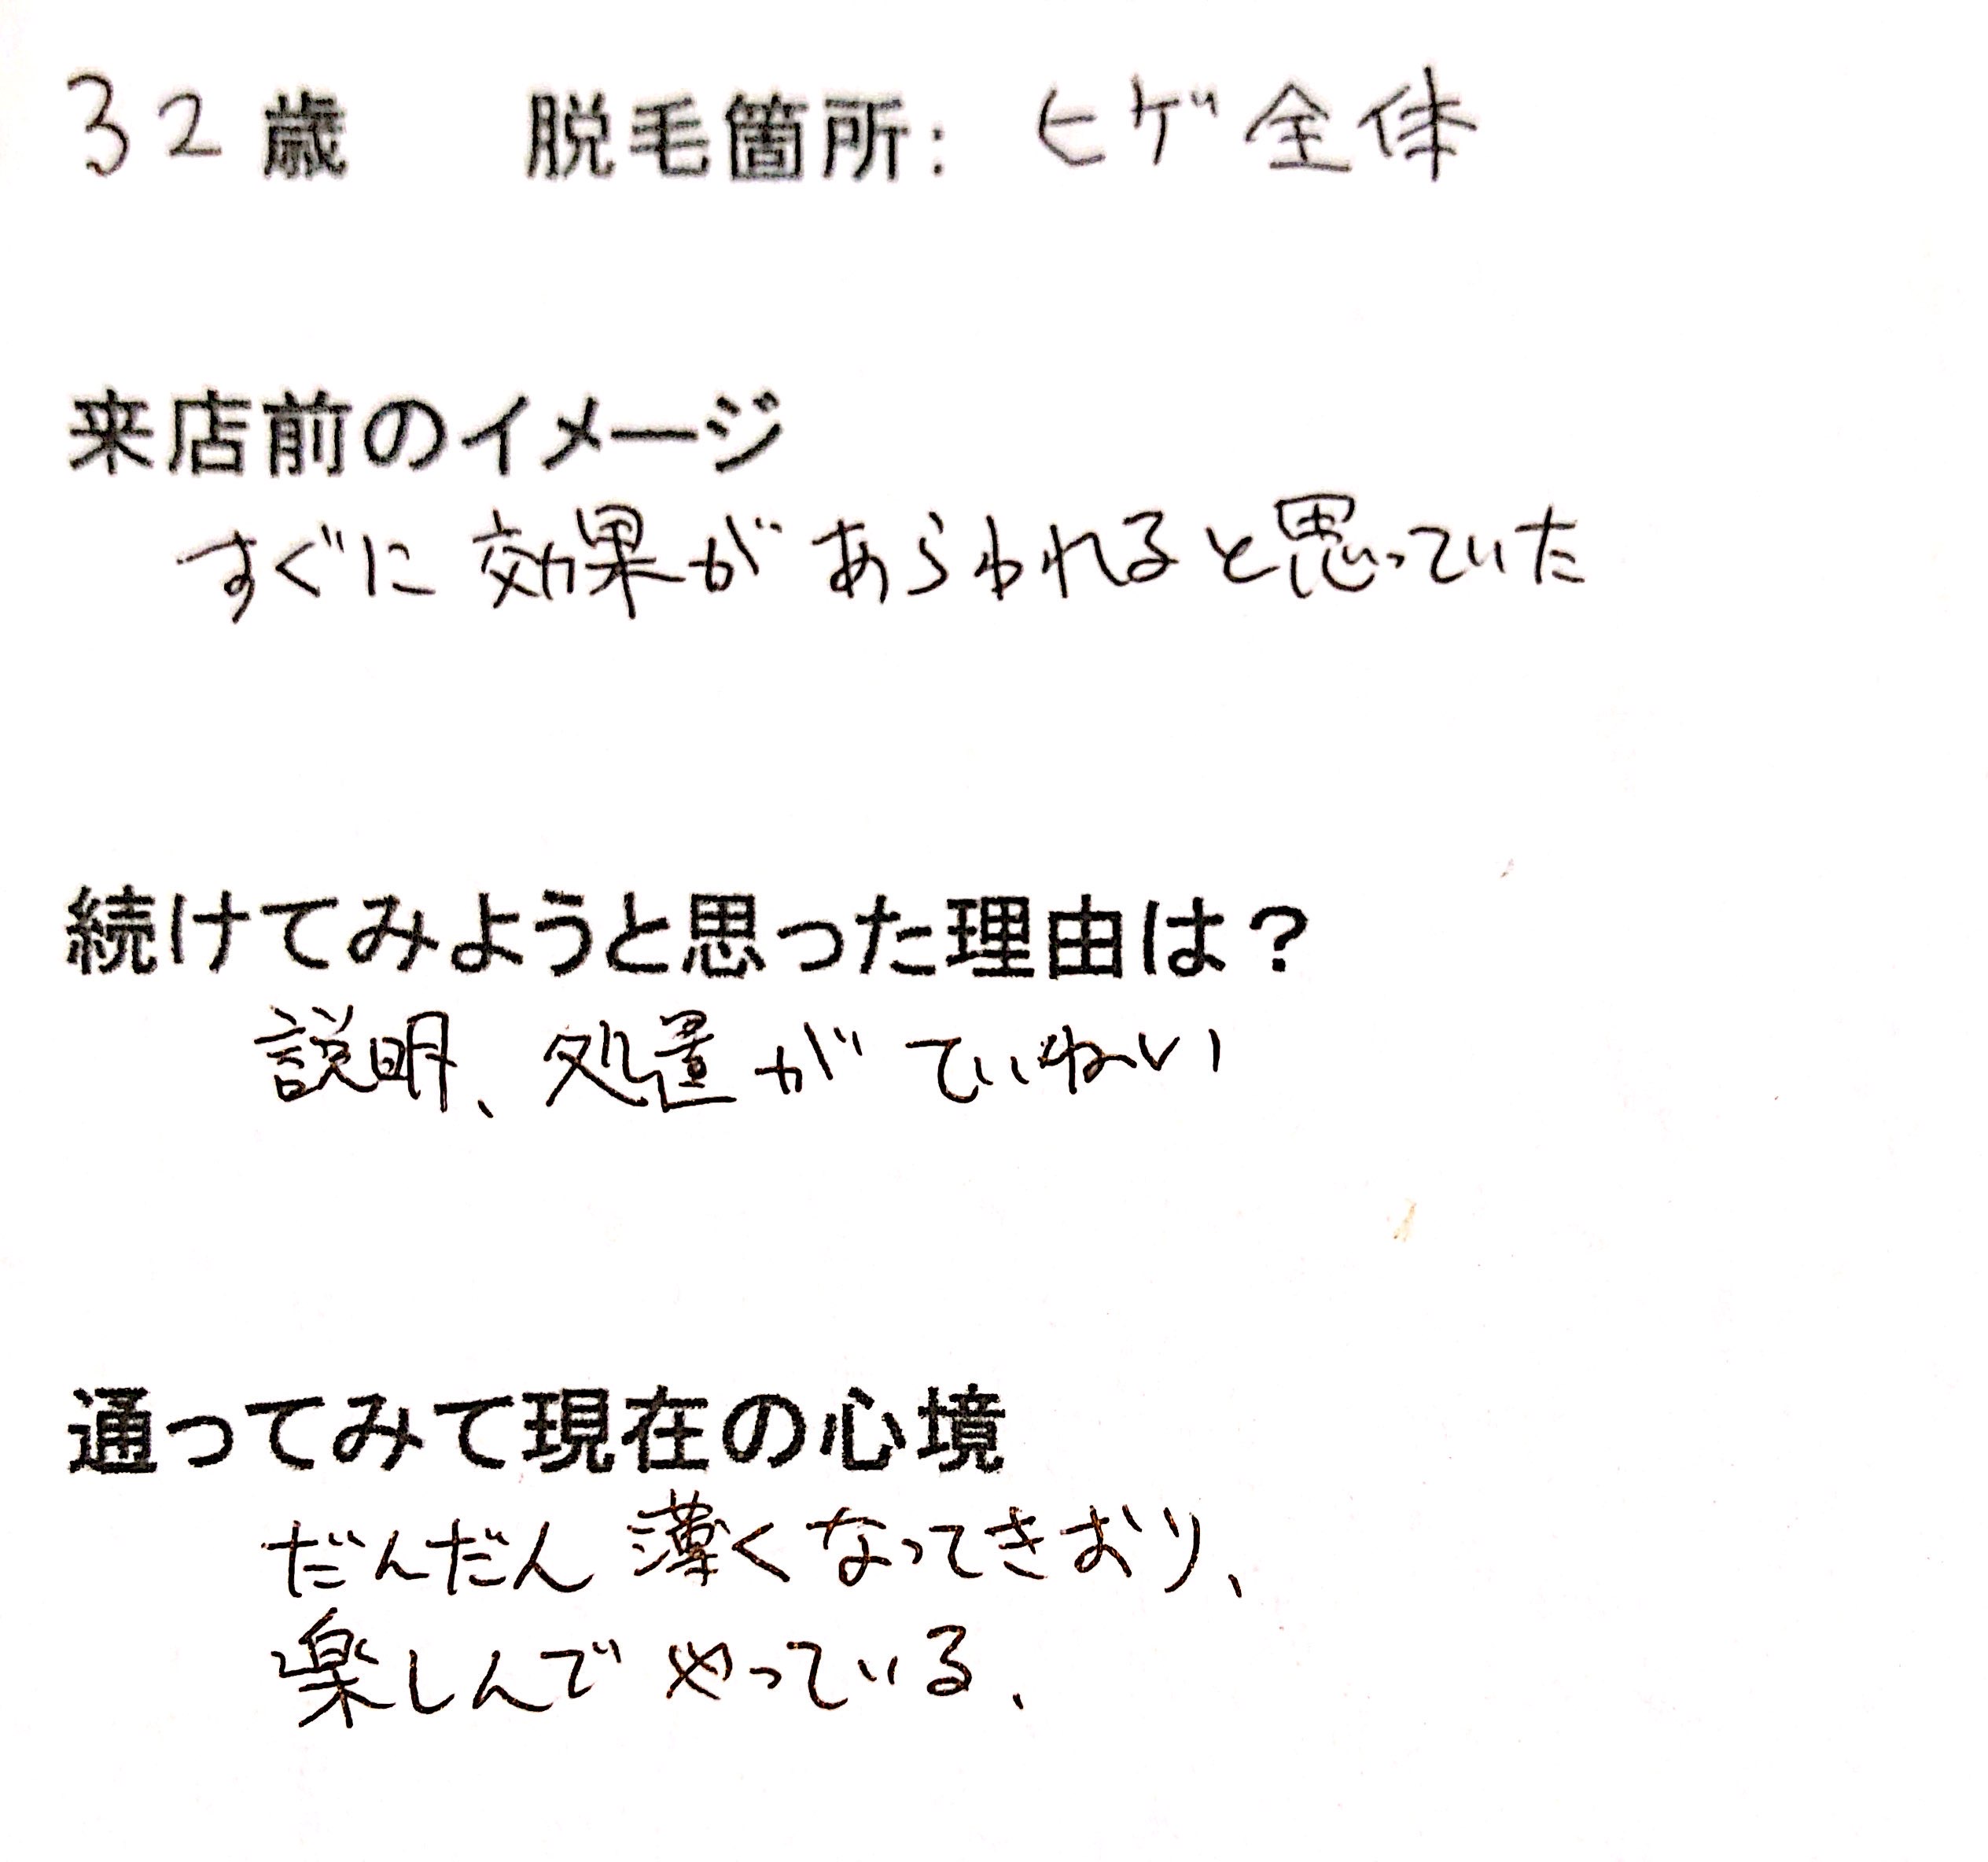 32歳 脱毛箇所: ヒゲ全体
来店前のイメージ
すぐに効果があらわれると思っていた
続けてみようと思った理由は?
説明、処置がていねい
通ってみて現在の心境
だんだん薄くなってきおり、
楽しんでやっている、